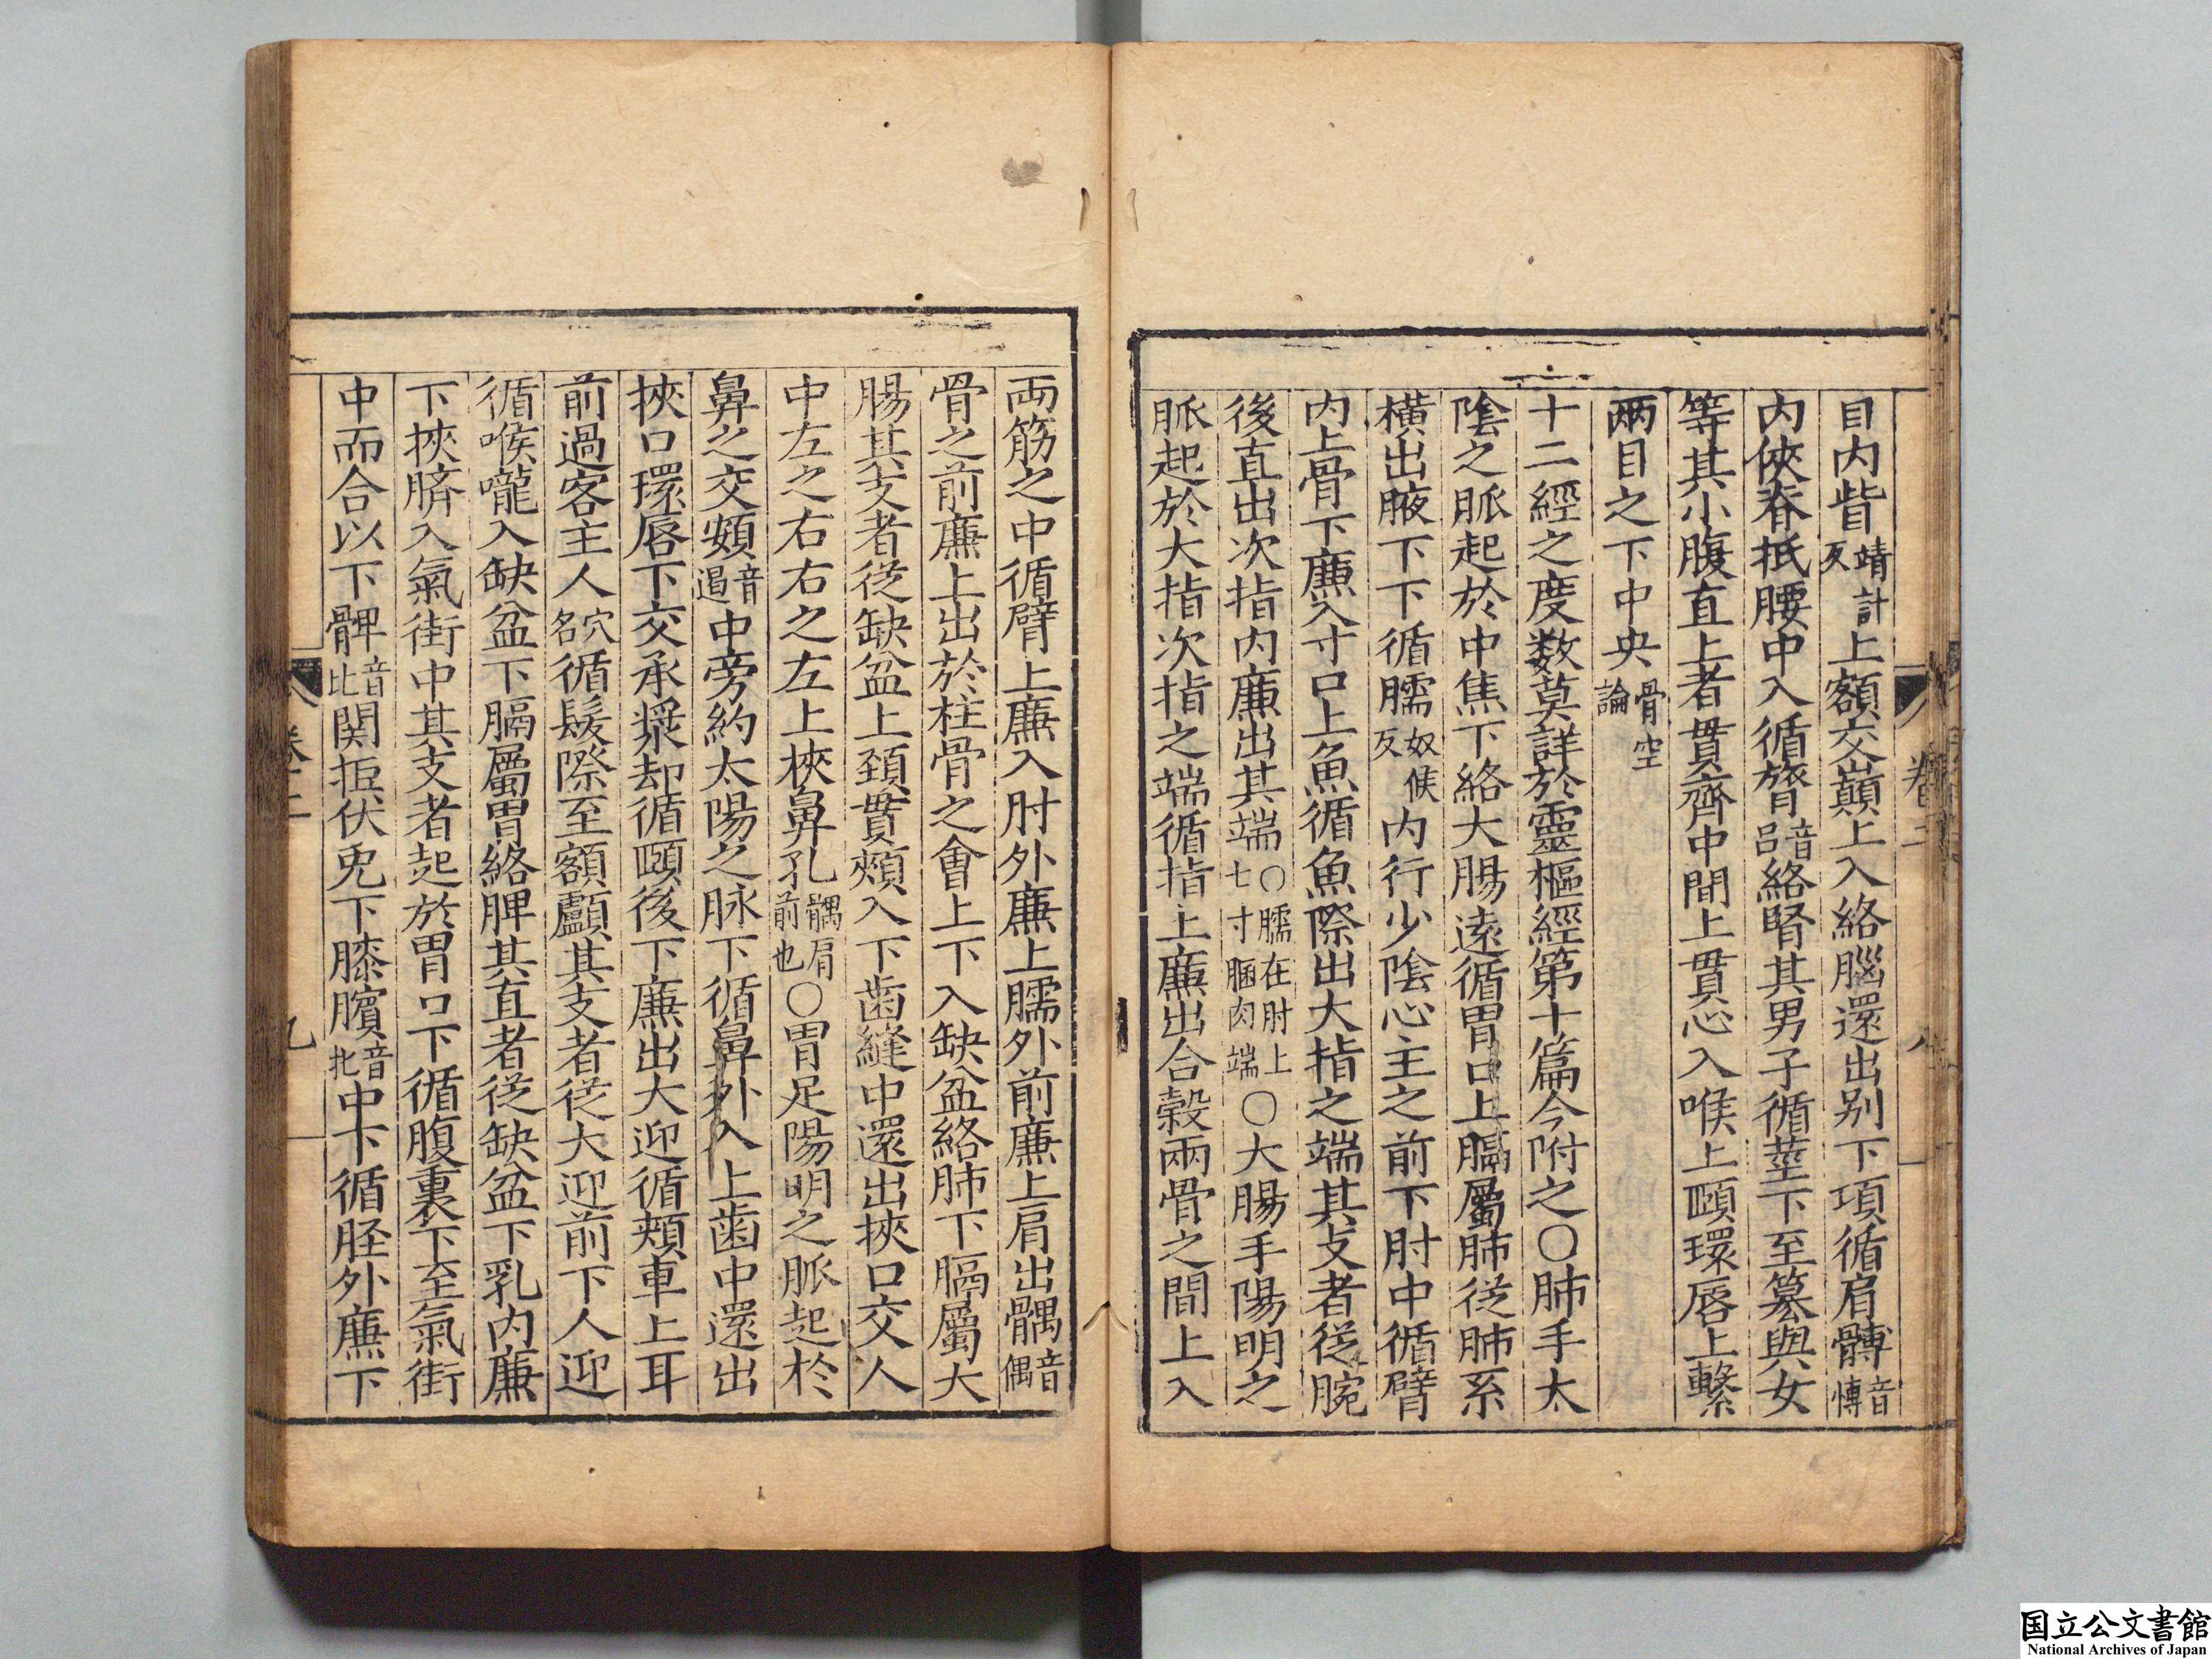 目内眥靖計反上額交巔上入絡腦還出别下項循肩髆音愽
内俠脊抵腰中入循膂音吕絡腎其男子循莖下至篡與女
等其小腹直上者貫齊中間上貫心入喉上頤環唇上繫
兩目之下中央骨空論
十二經之度数莫詳於靈樞經第十篇今附之〇肺手太
陰之脈起於中焦下絡大腸逺循胃口上膈屬肺從肺系
横出腋下下循臑奴候反内行少陰心主之前下肘中循臂
内上骨下廉入寸口上魚循魚際出大指之端其支者從腕
後直出次指内廉出其端〇臑在肘上七寸膕肉端〇大腸手陽明之
脈起於大指次指之端循指上廉出合榖兩骨之間上入
卷二
八
両筋之中循臂上廉入肘外廉上臑外前廉上肩出髃音偶
骨之前廉上出於柱骨之會上下入缺盆絡肺下膈屬大
腸其支者從缺盆上頚貫頰入下齒縫中還出挾口交人
中左之右右之左上挾鼻孔髃肩前也〇胃足陽明之脈起於
鼻之交頞音遏中旁約太陽之脉下循鼻外入上齒中還出
挾口環唇下交承漿却循頤後下廉出大迎循頰車上耳
前過客主人穴名循髮際至額顱其支者從大迎前下人迎
循喉嚨入缺盆下膈屬胃絡脾其直者從缺盆下乳内廉
下挾臍入氣街中其支者起於胃口下循腹裏下至氣街
中而合以下髀音比関抵伏兎下膝臏音牝中下循胫外廉下
卷二
九
国立公文書館
National Archives of Japan